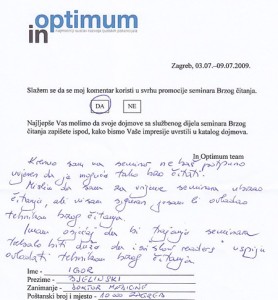 in optimum
Zagreb, 03.07.-09.07.2009.
Slažem se da se moj komentar koristi u svrhu promocije seminara Brzog čitanja.
DA NE
Najljepše Vas molimo da svoje dojmove sa službenog dijela seminara Brzog
čitanja zapišete ispod, kako bismo Vaše impresije uvrstili u katalog dojmova.
In Optimum team
Krenuo sam na seminar ne baš potpuno
uvjeren da je moguće tako brzo čitati.
Mislio da sam za vrijeme seminara ubrzao
čitanje, ali nisam siguran jesam li ovladao
tehnikom brzog čitanja.
Imam osjećaj da bi trajanje seminara
trebalo biti duže da i si slow readers uspiju
ovladati tehnikom brzog čitanja.
Ime - IGOR
Prezime - BJELINSKI
Zanimanje - DOKTOR MEDICINE
Poštanski broj i mjesto - 10000 ZAGREB